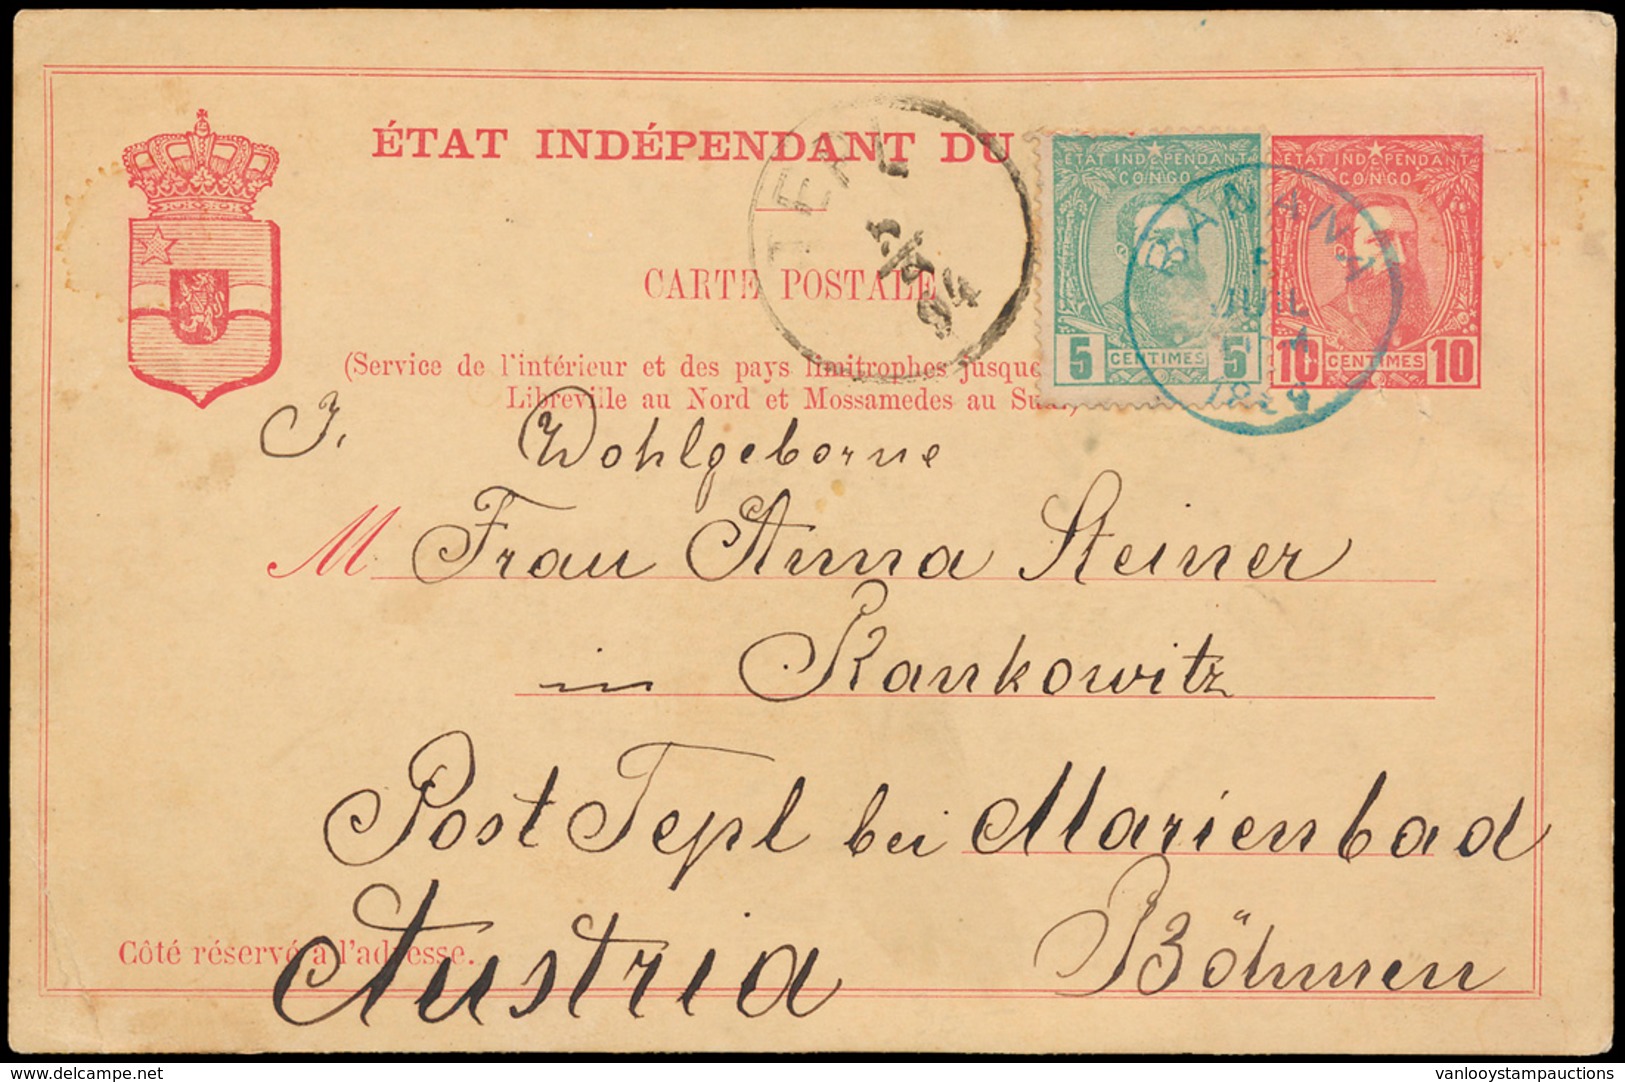 ÉTAT INDÉPENDANT DU
CARTE POSTALE
(Service de l'intérieur et des pays limitrophes jusque
Libreville au Nord et Mossamedes au Sud.)
ÉTAT INDÉPENDANT
CONGO
5 CENTIMES 5
ÉTAT INDÉPENDANT
CONGO
10 CENTIMES 10
BANANA
JUIL
TEPL
94
J. Wohlgeborne
M Frau Anna Steiner
in Rankowitz
Post Tepl bei Marienbad
Austria Böhmen
Côté réservé à l'adresse.
delcampe.net
vanlooystampauctions